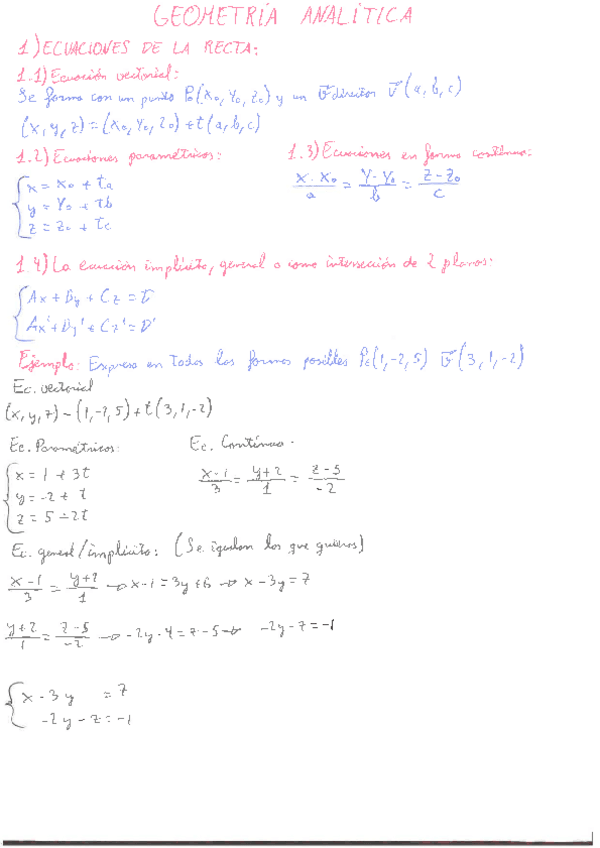 GEOMETRÍA ANALÍTICA
1) ECUACIONES DE LA RECTA:
1.1) Ecuación vectorial:
Se forma con un punto P₀(x₀, y₀, z₀) y un v⃗ director v⃗(a, b, c)
(x, y, z) = (x₀, y₀, z₀) + t(a, b, c)
1.2) Ecuaciones paramétricas:
1.3) Ecuaciones en forma continua:
x = x₀ + ta
y = y₀ + tb
z = z₀ + tc
x - x₀ / a = y - y₀ / b = z - z₀ / c
1.4) La ecuación implícita, general o como intersección de 2 planos:
Ax + By + Cz = D
Ax' + By' + Cz' = D'
Ejemplo: Expresa en todas las formas posibles P₀(1, -2, 5) v⃗(3, 1, -2)
Ec. vectorial
(x, y, z) = (1, -2, 5) + t(3, 1, -2)
Ec. Paramétricas:
Ec. Continua.
x = 1 + 3t
y = -2 + t
z = 5 - 2t
x - 1 / 3 = y + 2 / 1 = z - 5 / -2
Ec. general/implícita: (Se igualan las que quieras)
x - 1 / 3 = y + 2 / 1 → x - 1 = 3y + 6 → x - 3y = 7
y + 2 / 1 = z - 5 / -2 → -2y - 4 = z - 5 → -2y - z = -1
x - 3y = 7
-2y - z = -1